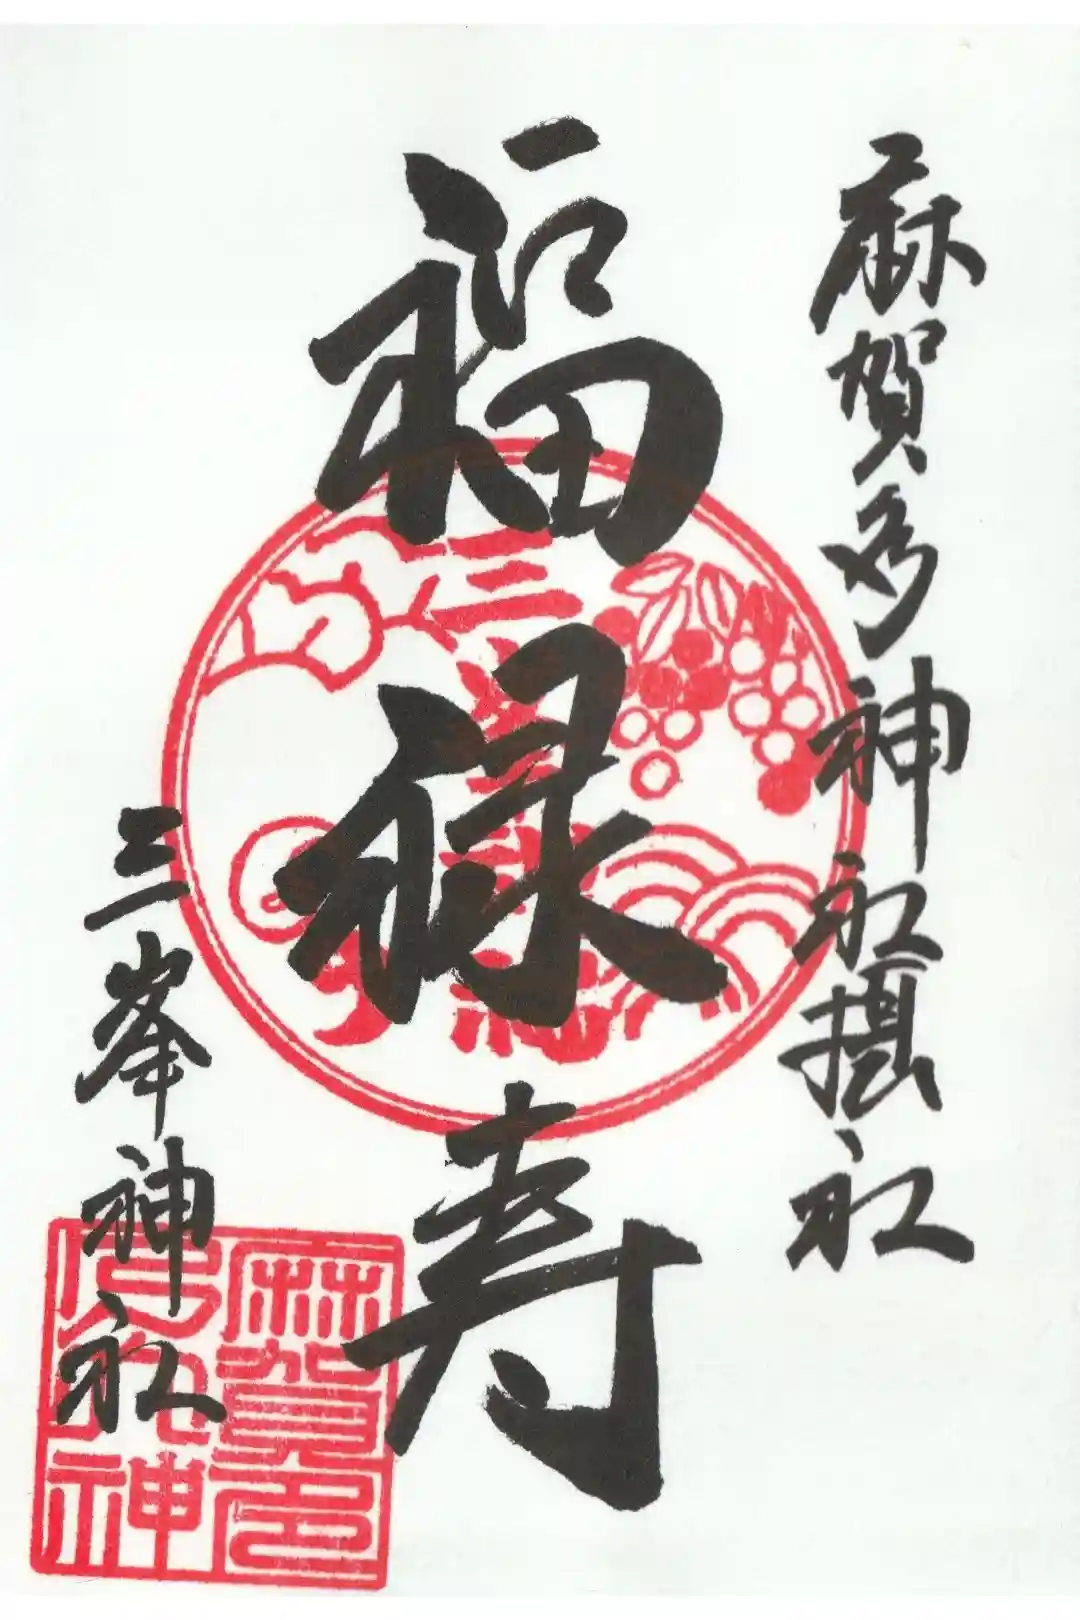 麻賀多神社摂社
福禄寿
三峯神社
三峯神社
麻賀多神社